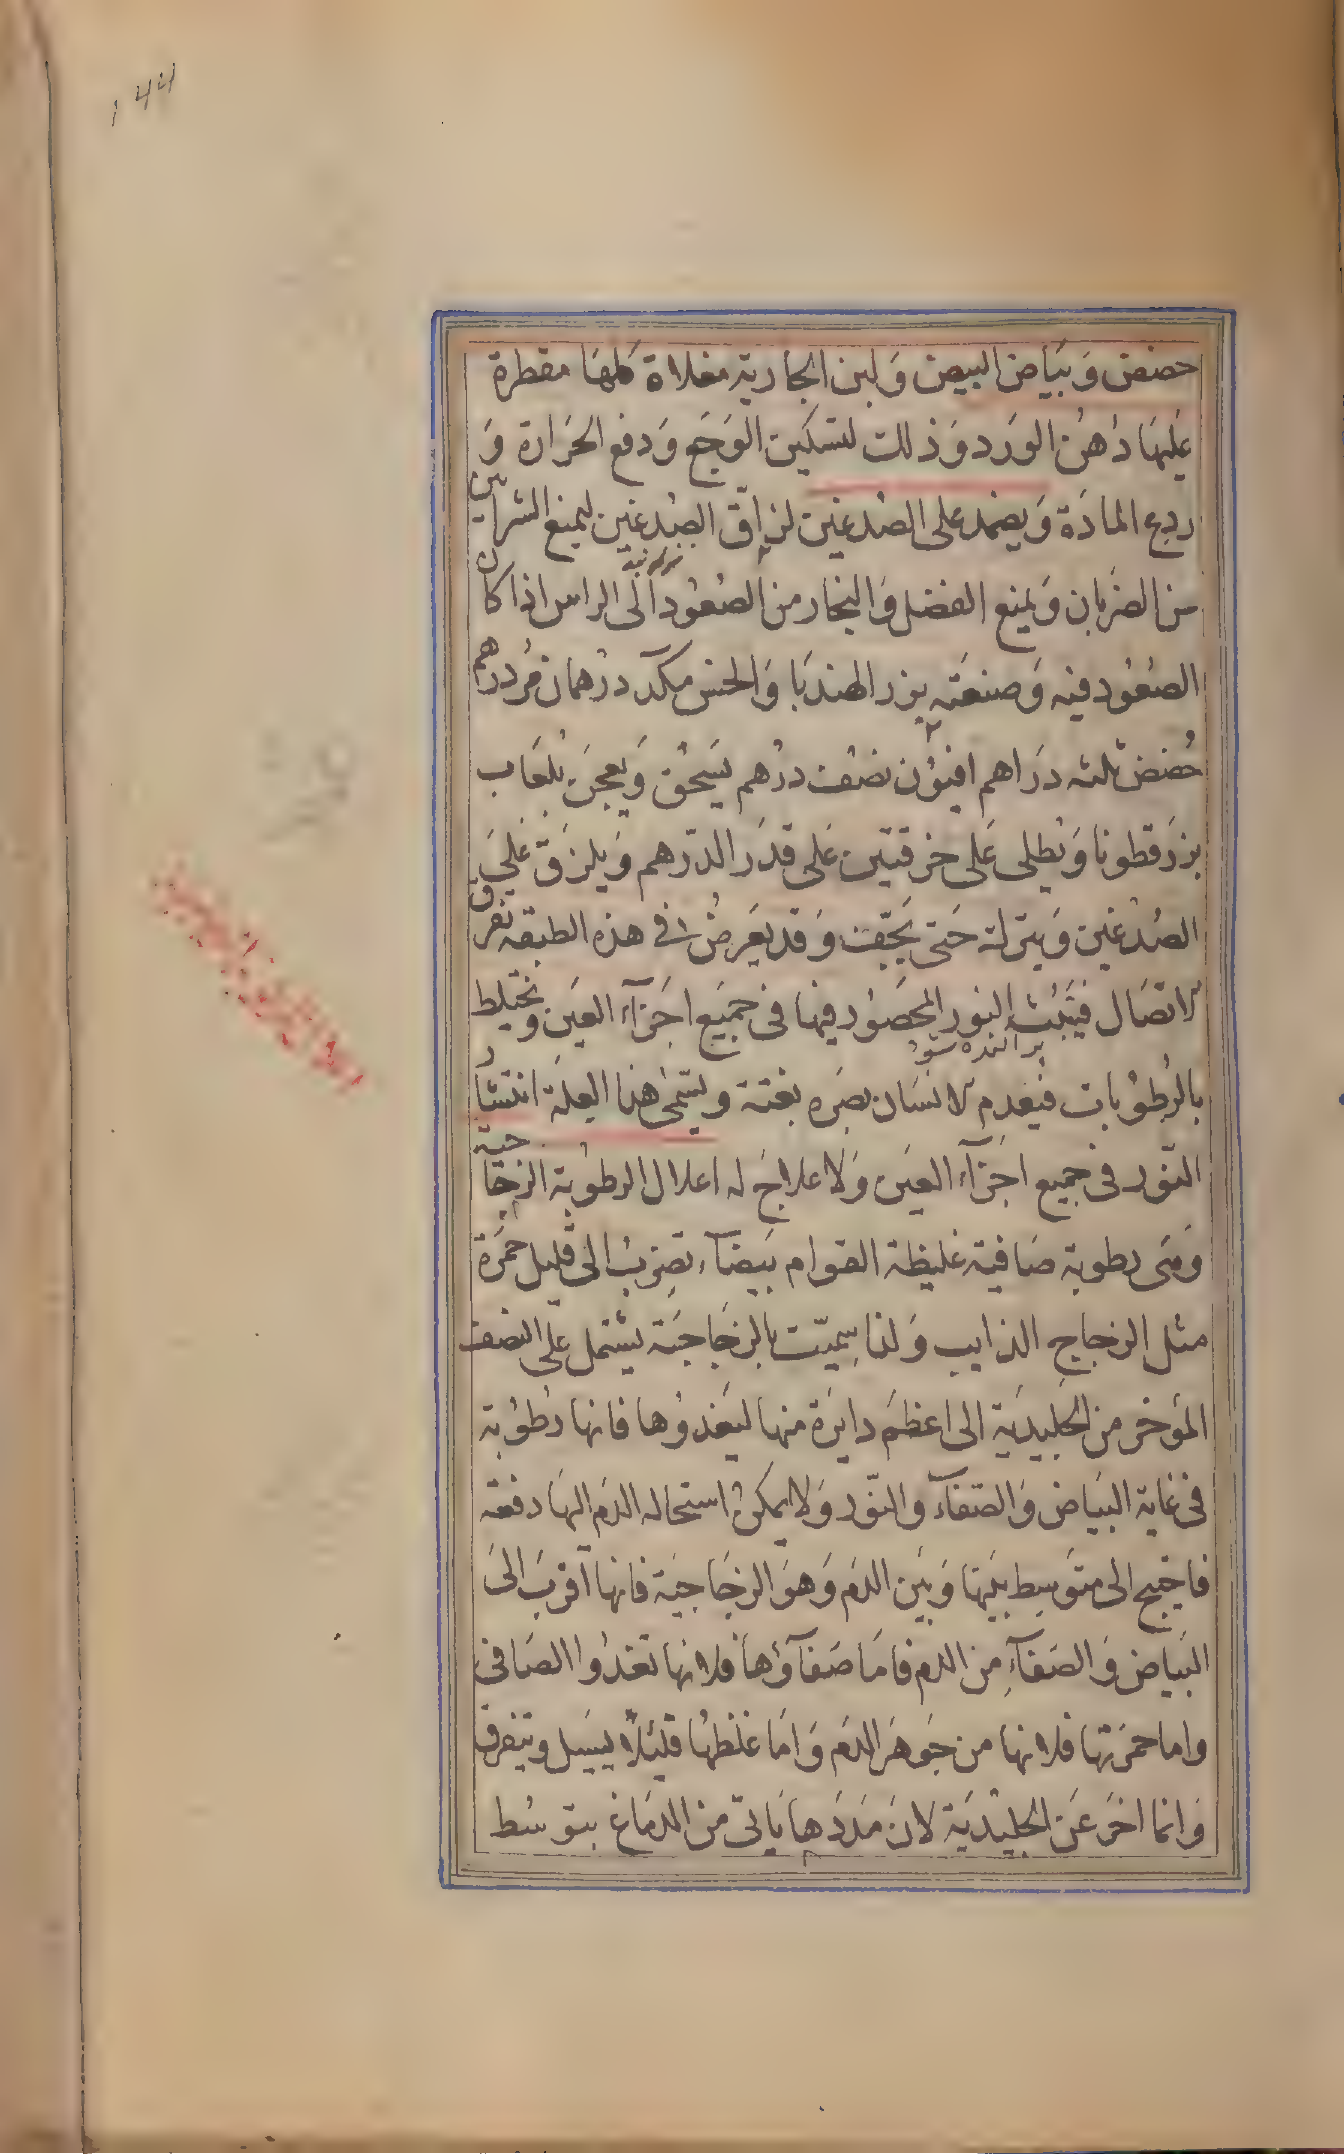 ١٤٤
حضض وَبيَاض البيض وَلبن الجارية مغلاة كلهَا مقطرة
عَليهَا دُهنُ الورَد وَذلك لتسكين الوَجَع وَدفع الحَرارة وَ
ردع المادَة وَيضمد على الصُدغين لزاق الصُدغين ليمنع الشرايين
من الضرَبان وَيمنع الفضل وَالبخار من الصُعُود الى الراس اذا كان
الصُعُود فيه وَصنعَته بزر الهندَبا وَالخس مكد درهمان مُر درهم
حُضض ثلثه دَراهم افيُون نصُف درُهم يَسَحُق وَيعجَن بلُعَاب
بزرَقطونا وَيطلى عَلى خرقتين عَلى قدَر الدّرهم وَيلزَق عَلىَ
الصُدُغين وَيترك حَتى يَجّف وَقد يَعرَضُ فى هذه الطبقه تفرق
لاتصَال فيَنبَث النور المحَصوُر فيها فى جميَع اجَزآء العَين وَيختلط
پراکنده شود
بالرُطوُبات فيعدم لانسَان بصَره بغتة ويسَمّى هذا العلة انتشار
النّور فى جميع اجَزآء العَين وَلا علاجَ له اعلال الرطوُبة الزجَاجية
وَهىَ رطوبة صَافية غليظة القوام بيَضآء تضربُ الى قليل حمَرة
مثل الزجاج الذايب وَلذا سِميّت بالزجَاجيَة يشتمل عَلى النصف
المؤخر من الجَليديَة الى اعظمَ دايَرة منها ليَغذوُها فانها رطوُبة
فى غاية البيَاض وَالصّفآء والنّور وَلا يمكنُ استحاله الدَم اليهَا دفعَه
فاحتيج الى متوَسط بيَنهَا وَبيَن الدَم وَهوَ الزجَاجيَة فانها اقربَ الىَ
البيَاض وَالصَفآءِ من الدم فامَا صَفآؤهَا فلانها تغذوا الصَافى
واما حمرَتها فلانها من جَوهَر الدَم وَامَا غلظهُا فلئلا يسيَل ويتفرق
وَانما اخرَ عَن الجليدَيَة لانَ مَدَدَها يَاتى من الدمَاغ بتوسُط